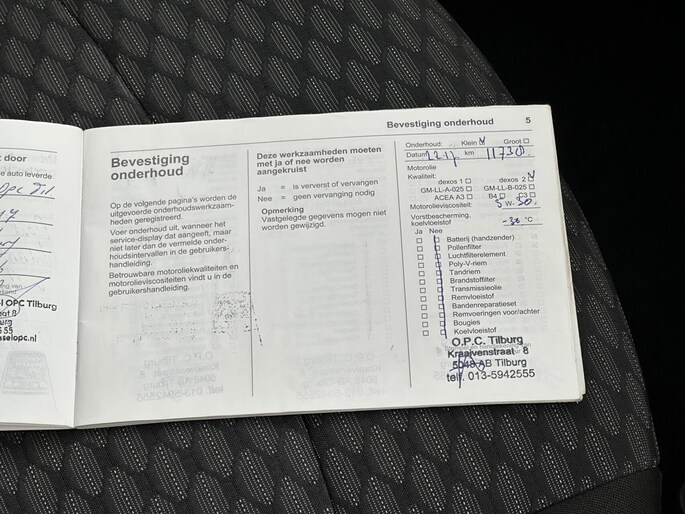 Bevestiging onderhoud 5
t door
e auto leverde
I OPC Tilburg
selopc.nl
Bevestiging
onderhoud
Op de volgende pagina's worden de
uitgevoerde onderhoudswerkzaam-
heden geregistreerd.
Voer onderhoud uit, wanneer het
service-display dat aangeeft, maar
niet later dan de vermelde onder-
houdsintervallen in de gebruikers-
handleiding.
Betrouwbare motoroliekwaliteiten en
motorolieviscositeiten vindt u in de
gebruikershandleiding.
Deze werkzaamheden moeten
met ja of nee worden
aangekruist
Ja = is ververst of vervangen
Nee = geen vervanging nodig
Opmerking
Vastgelegde gegevens mogen niet
worden gewijzigd.
Onderhoud: Klein Groot
Datum km
Motorolie
Kwaliteit:
dexos 1 dexos 2
GM-LL-A-025 GM-LL-B-025
ACEA A3 B4 C3
Motorolieviscositeit: 5 W- 30
Vorstbescherming,
koelvloeistof -30 °C
Ja Nee
Batterij (handzender)
Pollenfilter
Luchtfilterelement
Poly-V-riem
Tandriem
Brandstoffilter
Transmissieolie
Remvloeistof
Bandenreparatieset
Remvoeringen voor/achter
Bougies
Koelvloeistof
O.P.C. Tilburg
Kraaivenstraat 8
5048 AB Tilburg
telf. 013-5942555